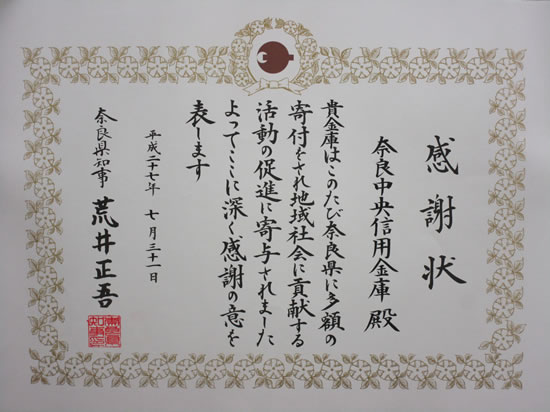 感謝状
奈良中央信用金庫 殿
貴金庫はこのたび奈良県に多額の
寄付をされ地域社会に貢献する
活動の促進に寄与されました
よってここに深く感謝の意を
表します
平成二十七年 七月三十一日
奈良県知事 荒井正吾